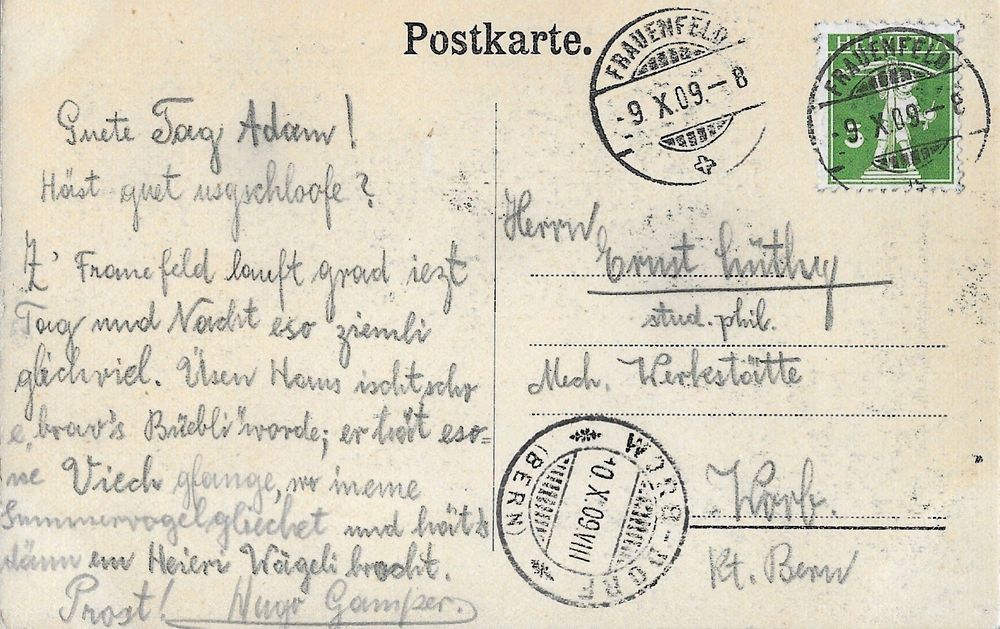 Postkarte.
FRAUENFELD
-9.X.09.-8
HELVETIA
5
FRAUENFELD
-9.X.09.-8
Guete Tag Adam!
Häst guet usgschloofe?
Z' Frauefeld lauft grad iezt
Tag und Nacht eso ziemli
gliichviel. Üsen Hans ischt scho
e "brav's Büebli" worde; er hät eso-
ne Viech gfange, wo imene
Summervogel gliechet und hät's
dänn em Heieri Wägeli brocht.
Prost! Hugo Gamper.
Herrn
Ernst Lüthy
stud. phil.
Mech. Werkstätte
Worb.
Kt. Bern
WORB-DORF
10.X.09.VIII
(BERN)